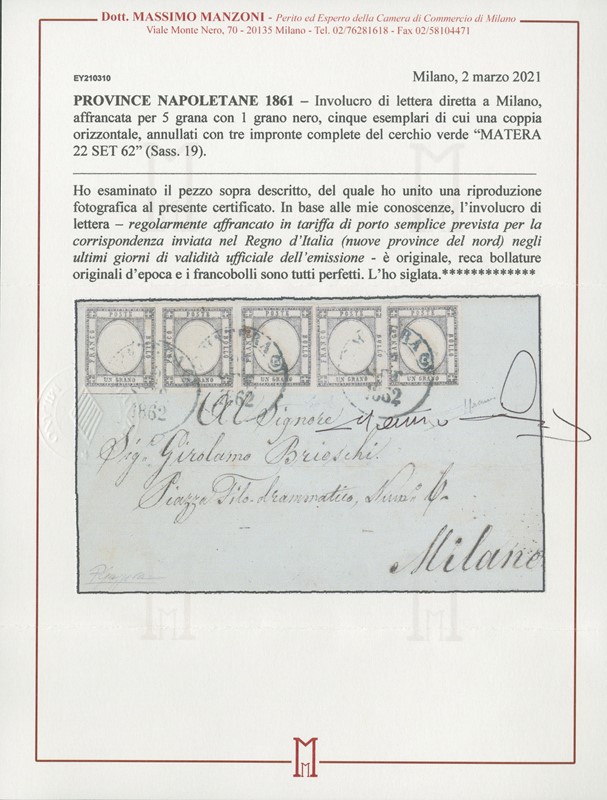 Dott. MASSIMO MANZONI - Perito ed Esperto della Camera di Commercio di Milano
Viale Monte Nero, 70 - 20135 Milano - Tel. 02/76281618 - Fax 02/58104471
EY210310
Milano, 2 marzo 2021
PROVINCE NAPOLETANE 1861 – Involucro di lettera diretta a Milano,
affrancata per 5 grana con 1 grano nero, cinque esemplari di cui una coppia
orizzontale, annullati con tre impronte complete del cerchio verde “MATERA
22 SET 62” (Sass. 19).
Ho esaminato il pezzo sopra descritto, del quale ho unito una riproduzione
fotografica al presente certificato. In base alle mie conoscenze, l’involucro di
lettera – regolarmente affrancato in tariffa di porto semplice prevista per la
corrispondenza inviata nel Regno d’Italia (nuove province del nord) negli
ultimi giorni di validità ufficiale dell’emissione - è originale, reca bollature
originali d’epoca e i francobolli sono tutti perfetti. L’ho siglata.*************
POSTE POSTE POSTE POSTE POSTE
FRANCO BOLLO FRANCO BOLLO FRANCO BOLLO FRANCO BOLLO FRANCO BOLLO
UN GRANO UN GRANO UN GRANO UN GRANO UN GRANO
1862 1862
Al Signore
Sig. Girolamo Brioschi.
Piazza Filodrammatico, Num.o 6.
Milano
M